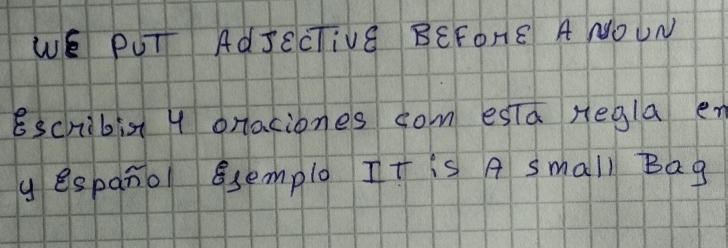 WE PUT ADJECTIVE BEFORE A NOUN
Escribir 4 oraciones con esta regla en
y Español Ejemplo IT is A small Bag